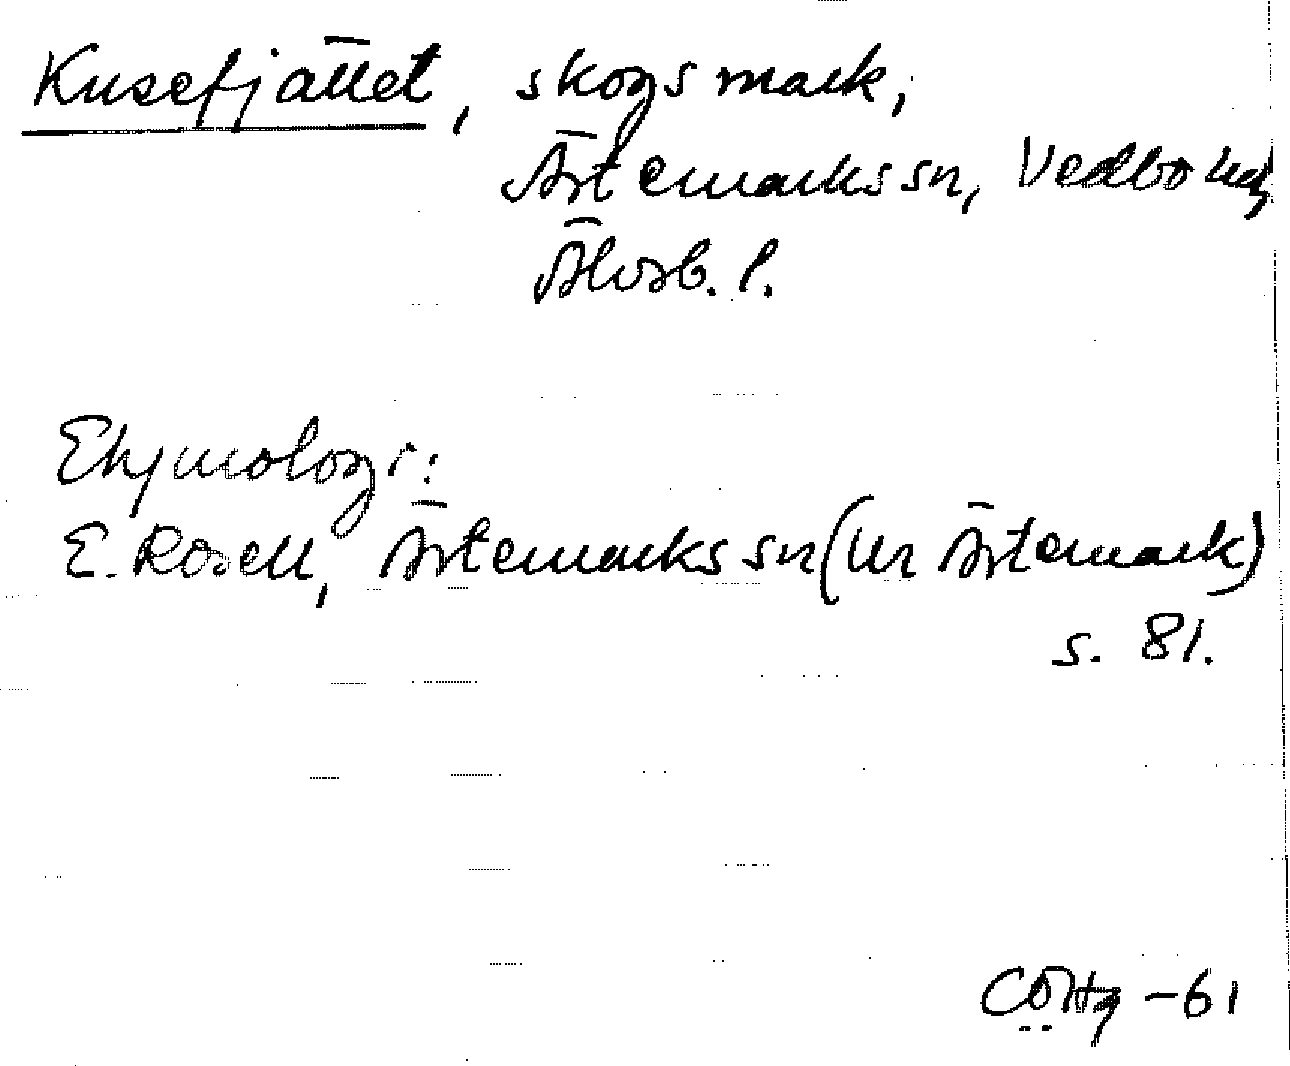 Kusefjället, skogsmark,
Ärtemarks sn, Vedbo hd,
Älvsb. l.
Etymologi:
E. Rosell, Ärtemarks sn (Ur Ärtemark)
s. 81.
-61